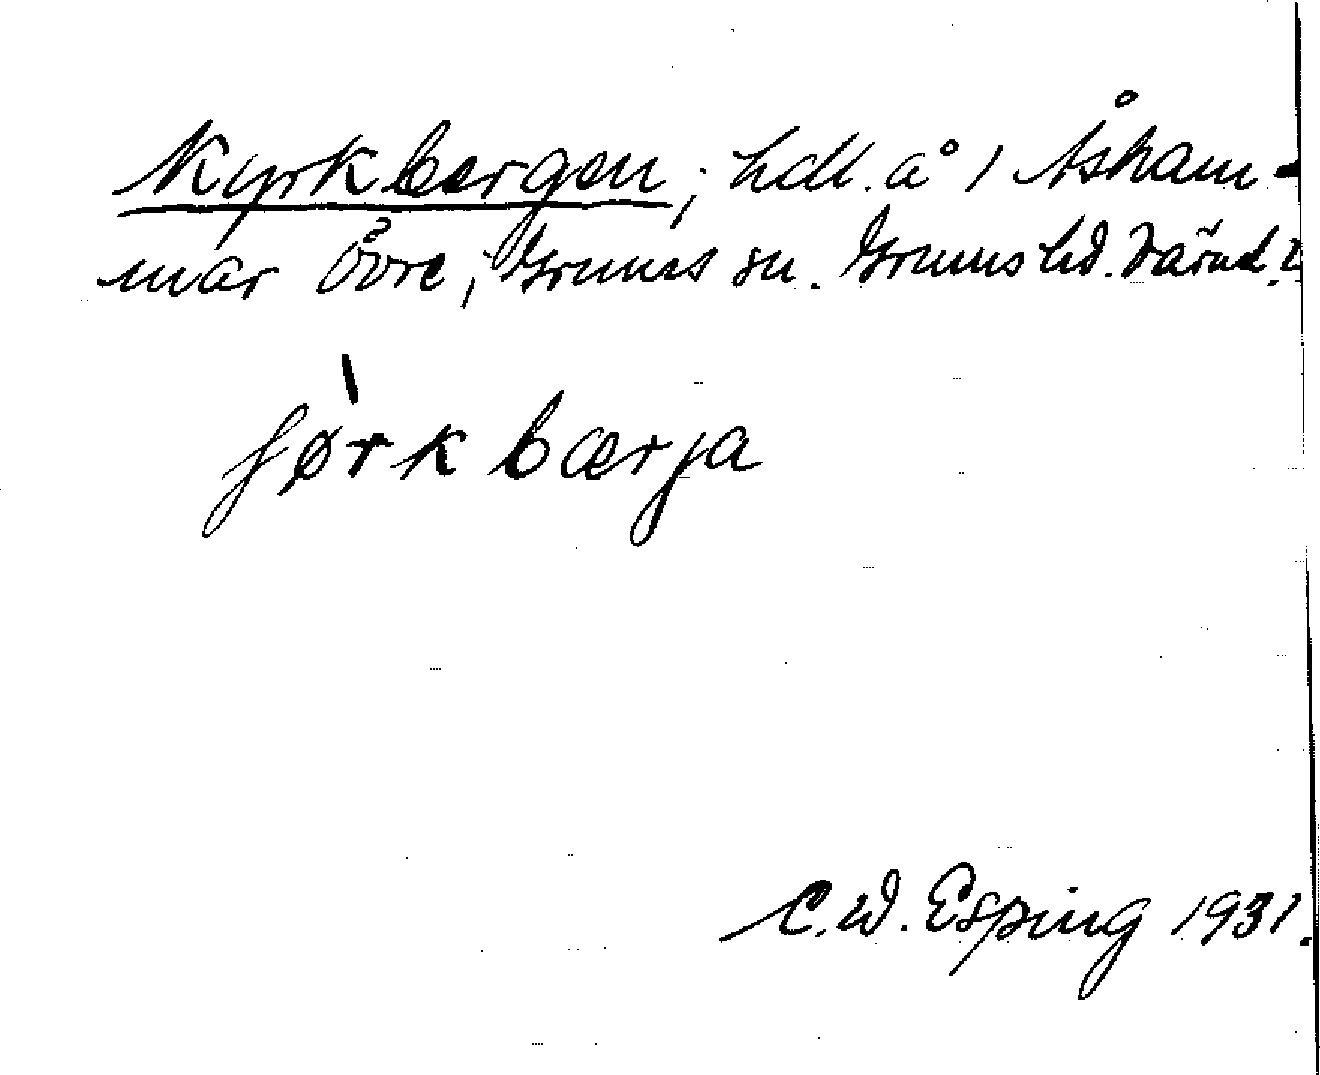 Kyrkbergen; hdl. å 1 Åsham-
mar Övre, Grums sn. Grums hd. Värml.
jørkbærja
C.W. Esping 1931.